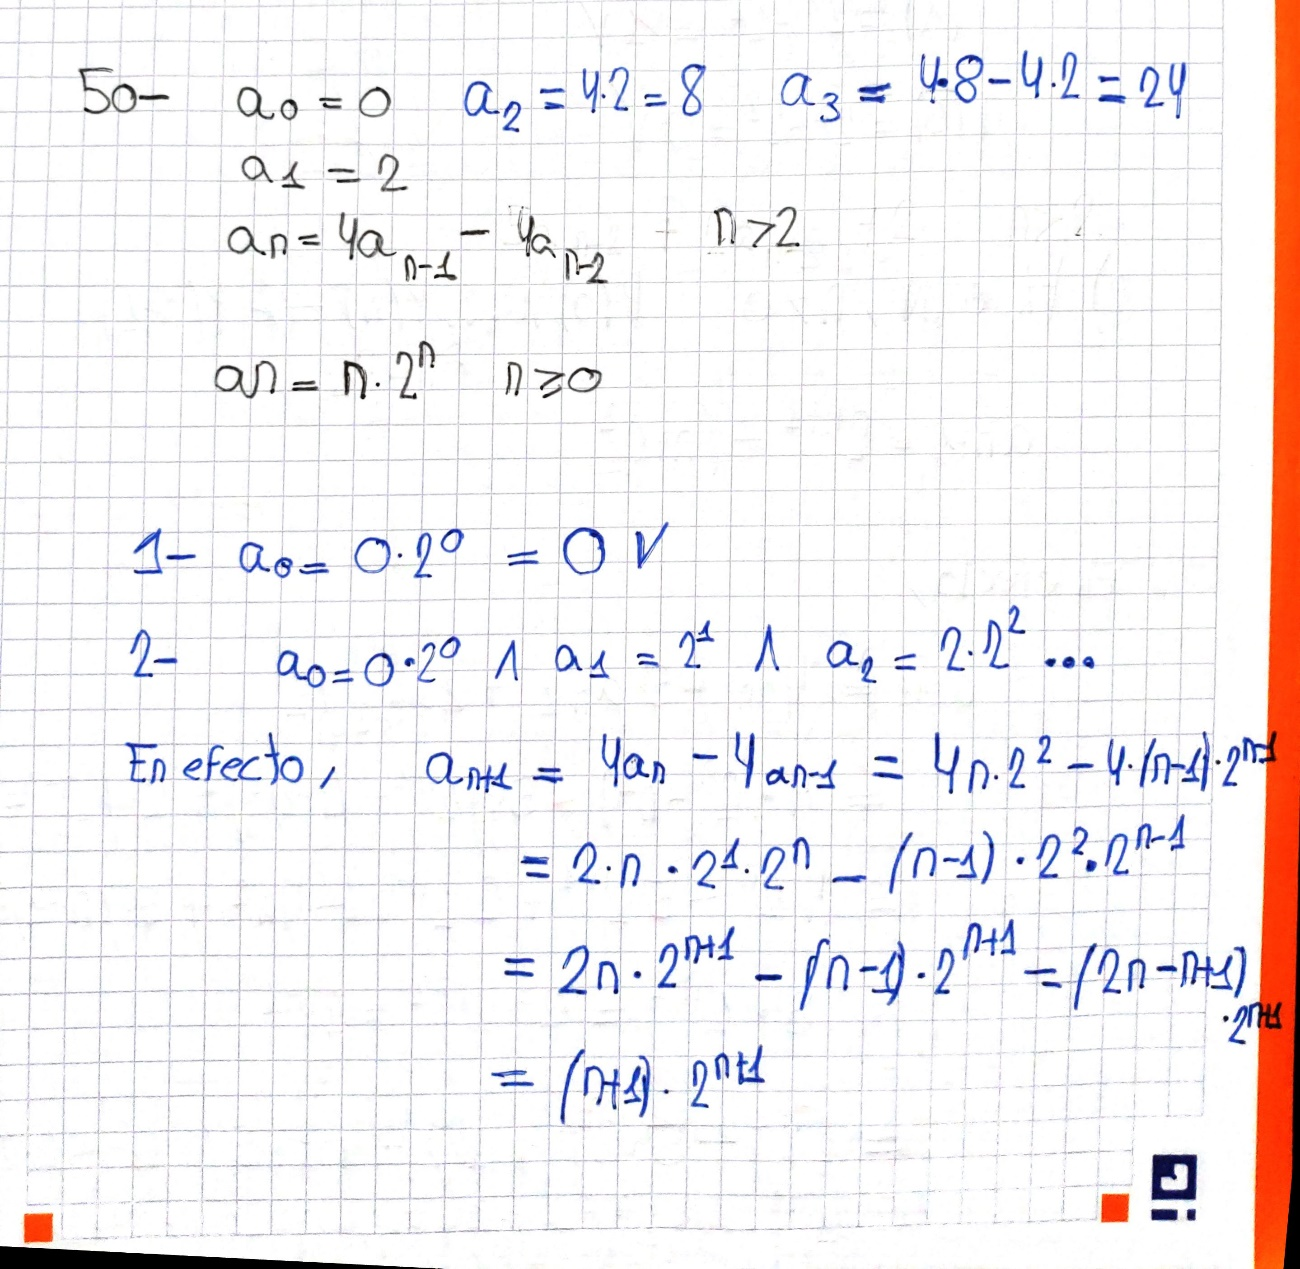 50- a₀ = 0 a₂ = 4·2 = 8 a₃ = 4·8 - 4·2 = 24
a₁ = 2
aₙ = 4aₙ₋₁ - 4aₙ₋₂ n > 2
aₙ = n·2ⁿ n ≥ 0
1- a₀ = 0·2⁰ = 0 V
2- a₀ = 0·2⁰ ∧ a₁ = 2¹ ∧ a₂ = 2·2² ...
En efecto, aₙ₊₁ = 4aₙ - 4aₙ₋₁ = 4n·2² - 4·(n-1)·2ⁿ⁻¹
= 2·n·2¹·2ⁿ - (n-1)·2²·2ⁿ⁻¹
= 2n·2ⁿ⁺¹ - (n-1)·2ⁿ⁺¹ = (2n-n+1)
·2ⁿ⁺¹
= (n+1)·2ⁿ⁺¹